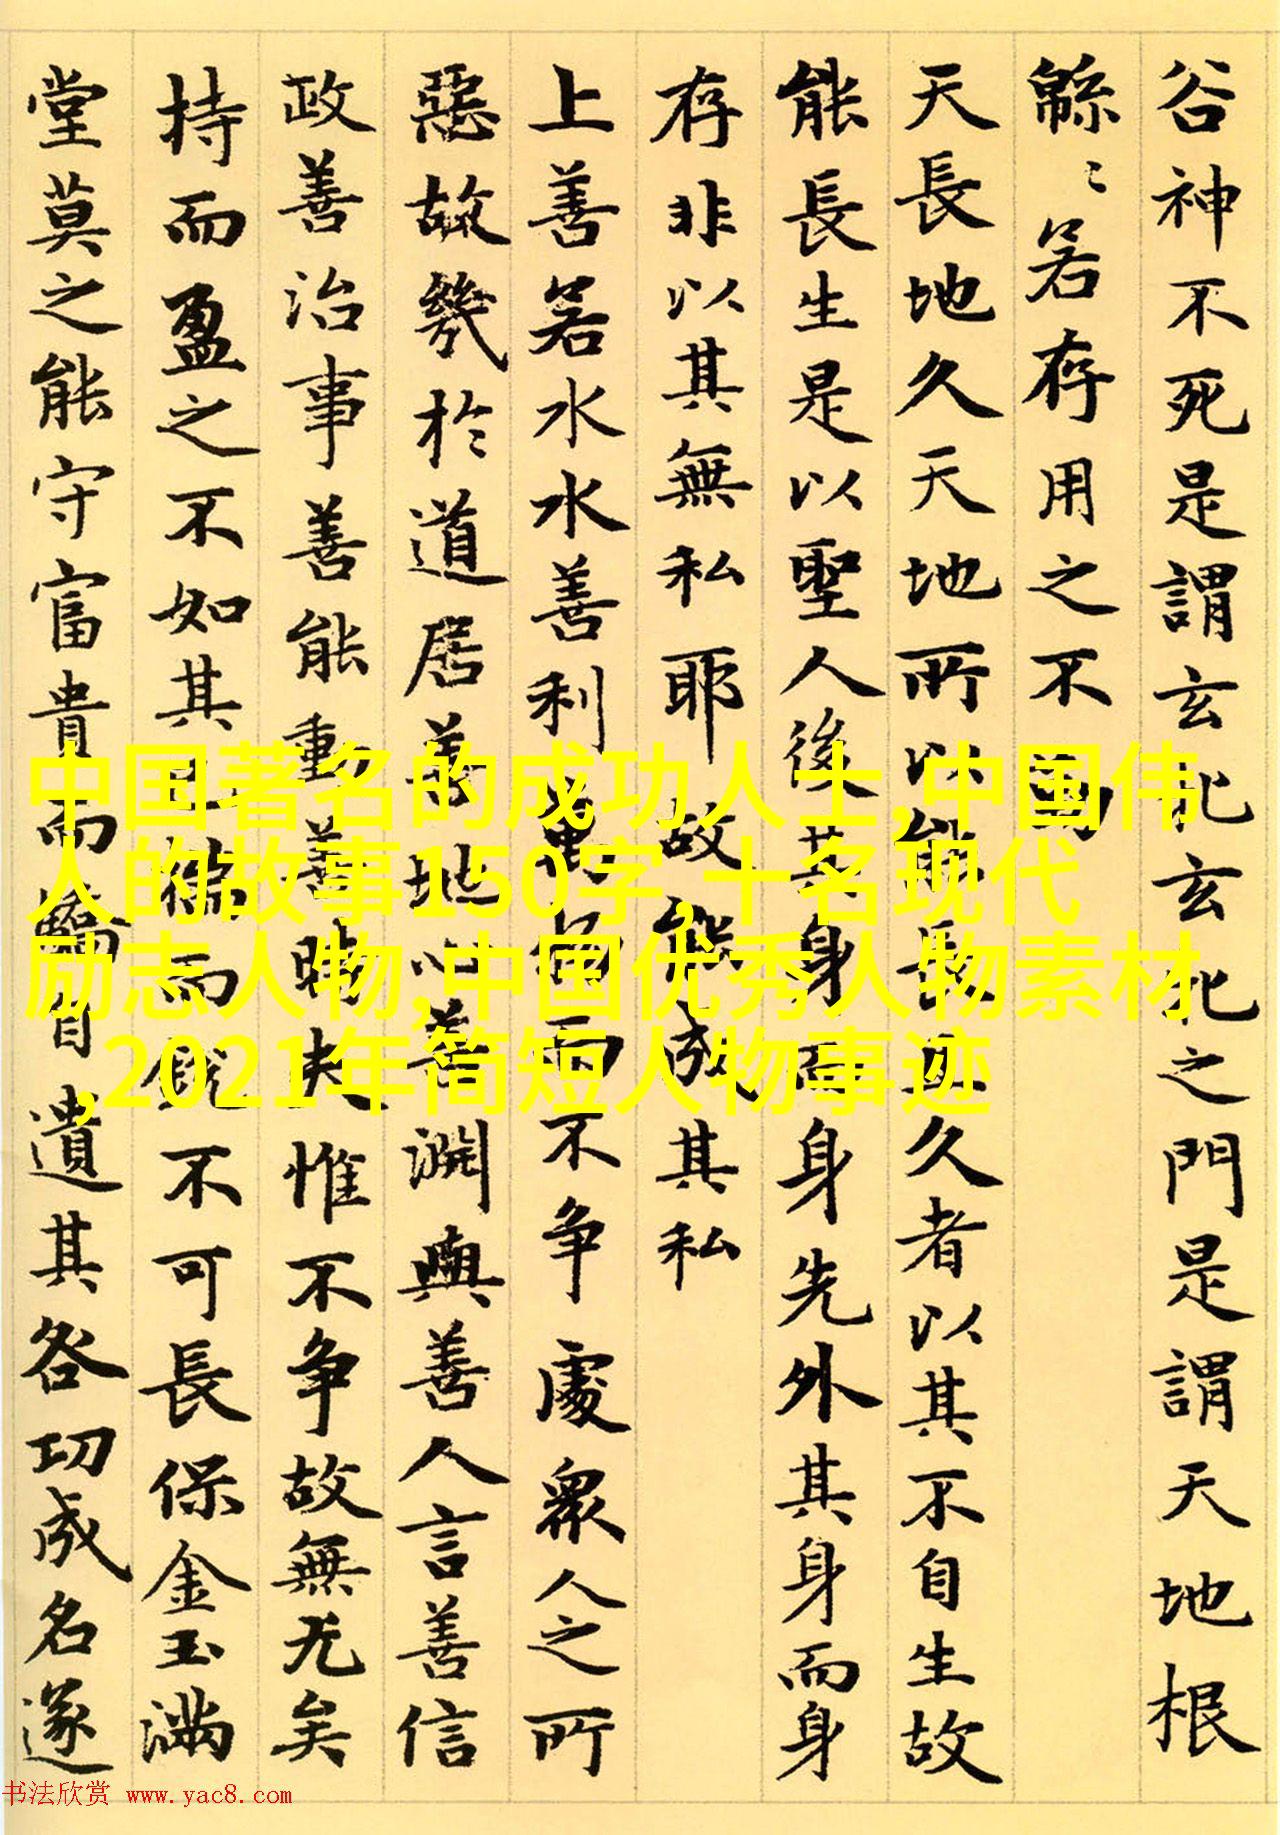 谷神不死是謂玄牝玄牝之門是謂天地根
緜〻若存用之不
天長地久天地所以能長且久者以其不自生故
能長生是以聖人後其身而身先外其身而身
存非以其無私耶故能成其私
上善若水水善利萬物而不争處衆人之所
惡故幾於道居善地心善淵與善人言善信
政善治事善能動善時夫惟不争故無尤矣
持而盈之不如其已揣而銳不可長保金玉滿
堂莫之能守富貴而驕自遺其咎功成名遂
中国著名的成功人士,中国伟
人的故事150字,十名现代
励志人物,中国优秀人物素材
,2021年简短人物事迹
书法欣赏 www.yac8.com